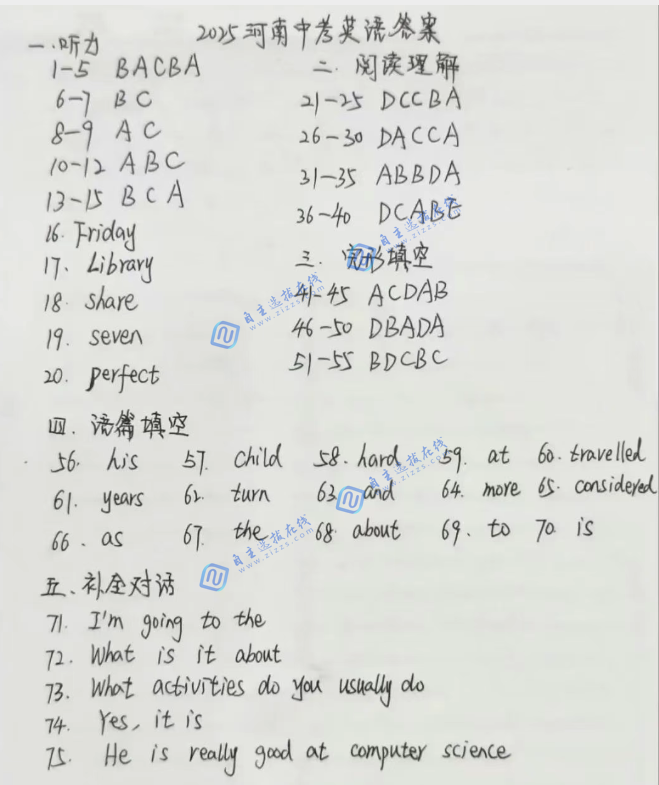 2025河南中考英语答案
一.听力
1-5 BACBA
6-7 BC
8-9 AC
10-12 ABC
13-15 BCA
16. Friday
17. Library
18. share
19. seven
20. perfect
二. 阅读理解
21-25 DCCBA
26-30 DACCA
31-35 ABBDA
36-40 DCABE
三. 完形填空
41-45 ACDAB
46-50 DBADA
51-55 BDCBC
四. 语篇填空
56. his 57. child 58. hard 59. at 60. travelled
61. years 62. turn 63. and 64. more 65. considered
66. as 67. the 68. about 69. to 70 is
五、补全对话
71. I'm going to the
72. What is it about
73. What activities do you usually do
74. Yes, it is
75. He is really good at computer science
自主选拔在线
www.zizzs.com
自主选拔在线
www.zizzs.com
自主选拔在线
www.zizzs.com
自主选拔在线
www.zizzs.com